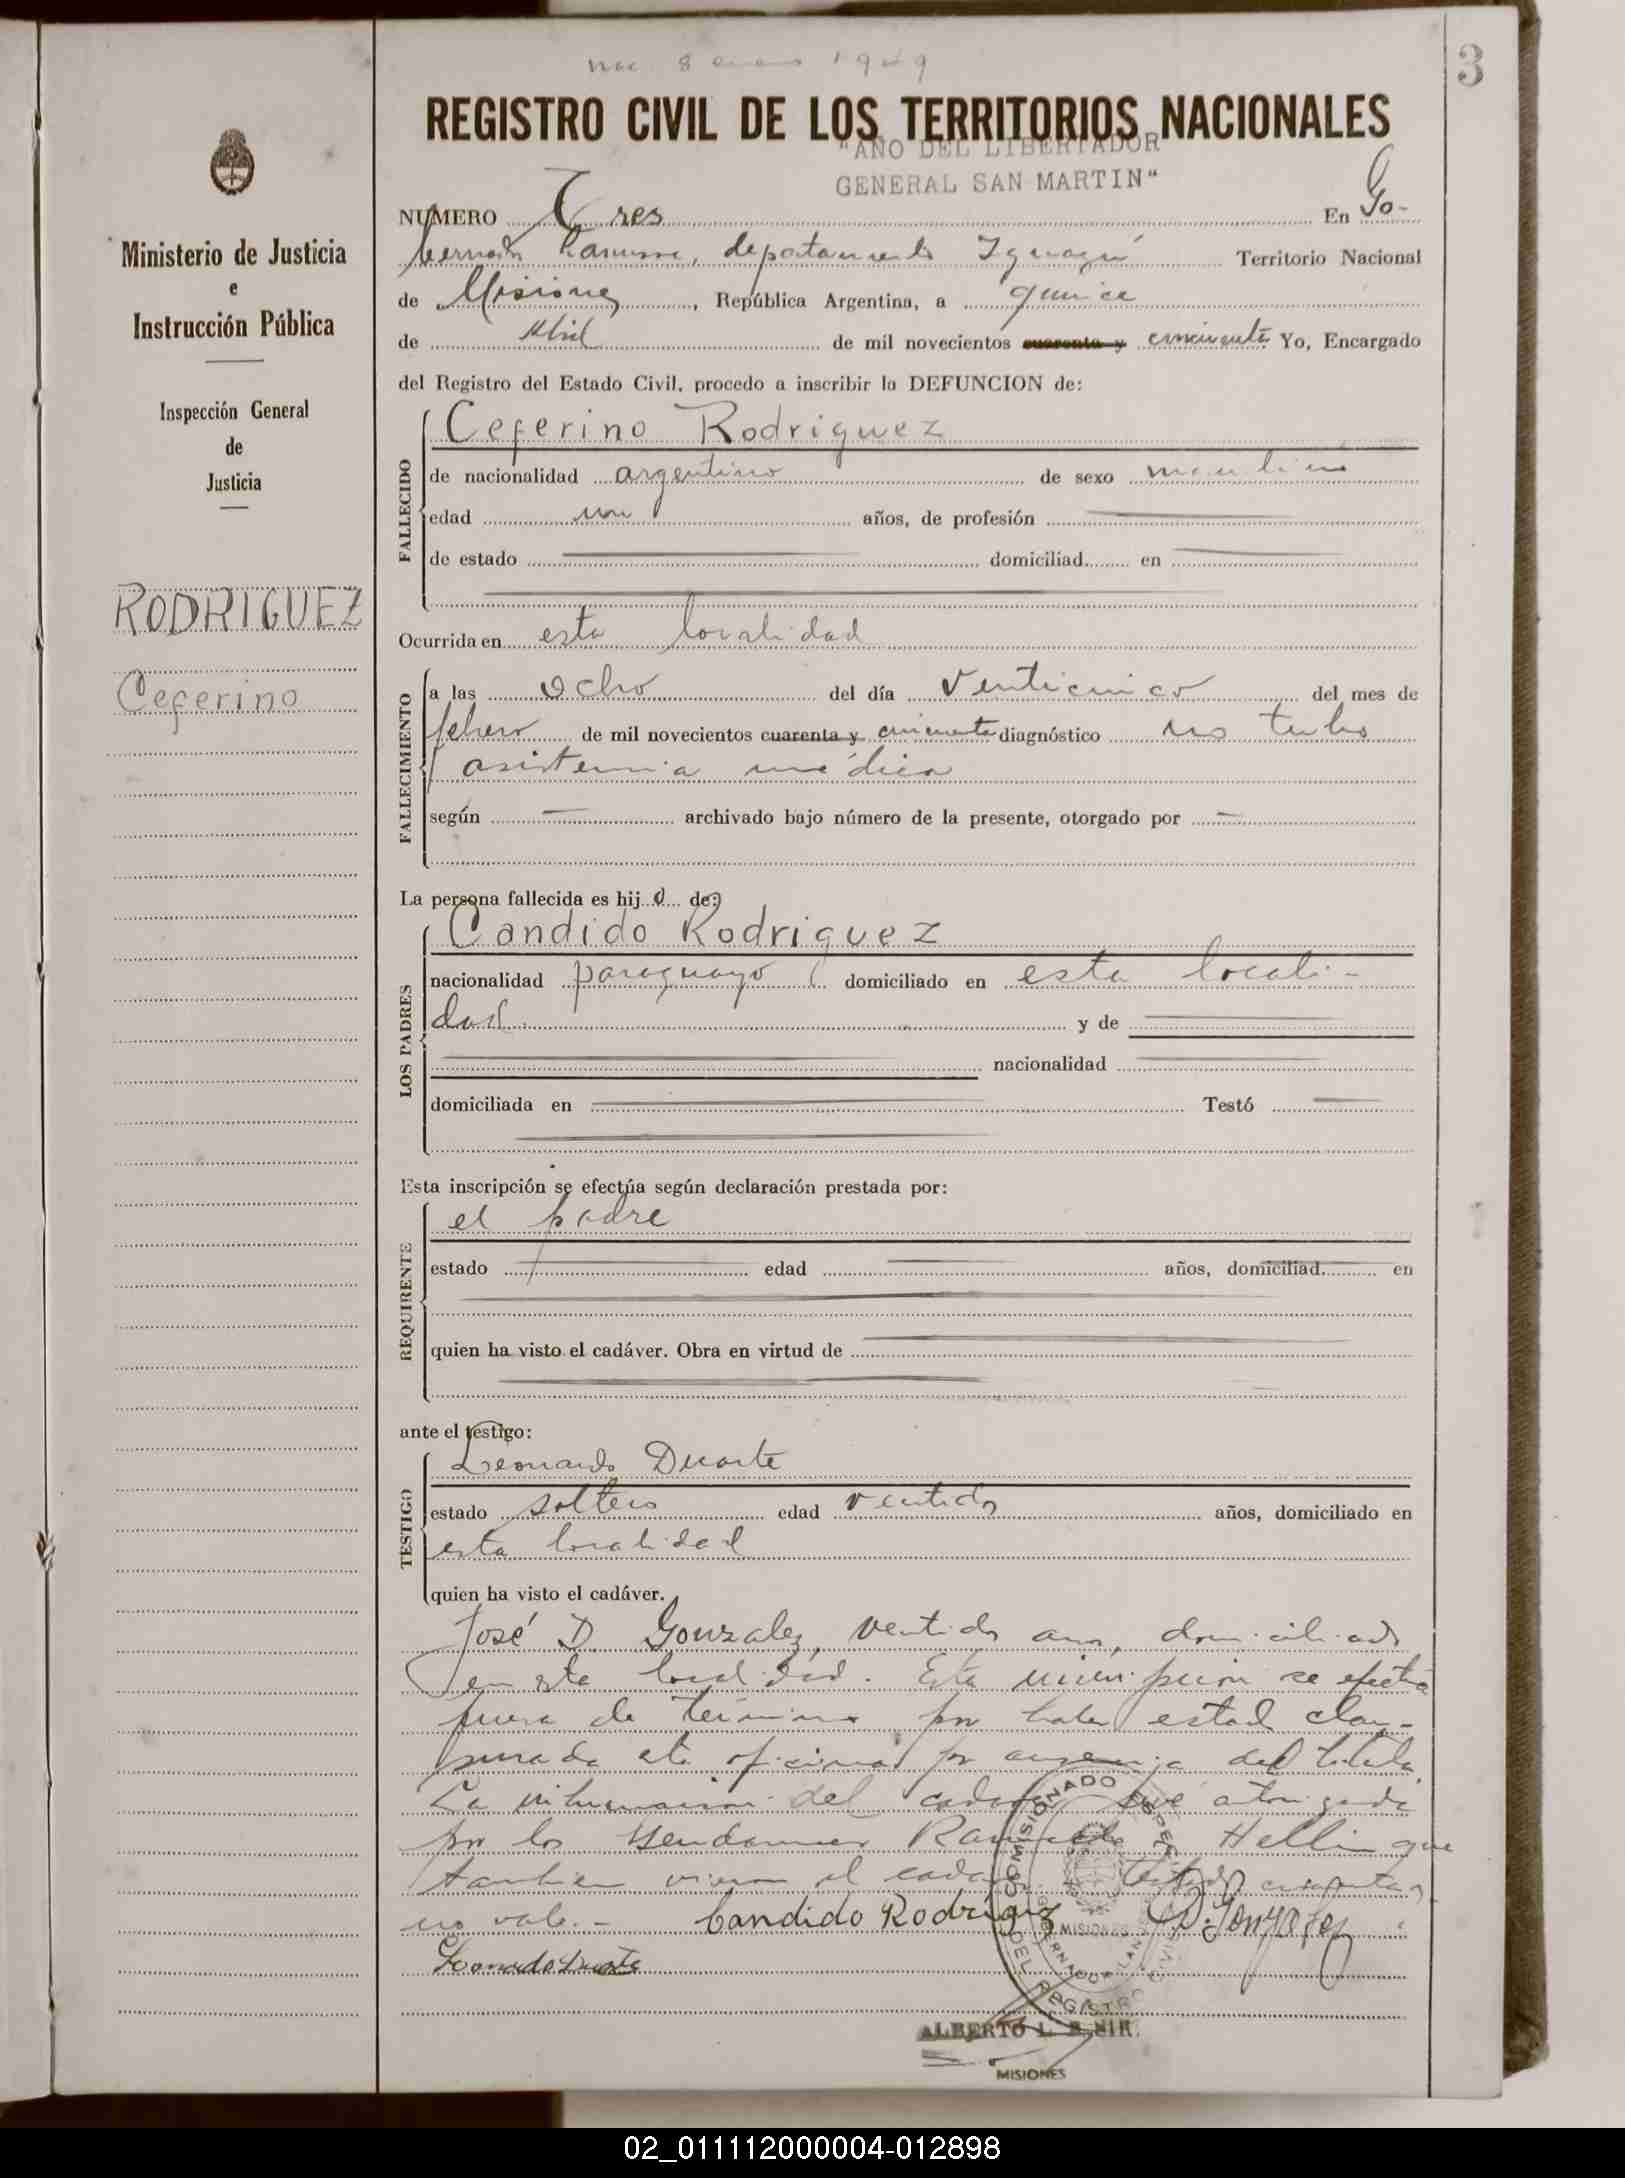 nac. 8 enero 1949
3
REGISTRO CIVIL DE LOS TERRITORIOS NACIONALES
"AÑO DEL LIBERTADOR
GENERAL SAN MARTIN"
Ministerio de Justicia
e
Instrucción Pública
Inspección General
de
Justicia
RODRIGUEZ
Ceferino
NUMERO Tres En Go-
bernador Lanusse, departamento Iguazú Territorio Nacional
de Misiones, República Argentina, a quince
de Abril de mil novecientos cuarenta y cincuenta Yo, Encargado
del Registro del Estado Civil, procedo a inscribir la DEFUNCION de:
FALLECIDO
Ceferino Rodriguez
de nacionalidad argentino de sexo masculino
edad un años, de profesión
de estado domiciliad en
Ocurrida en esta localidad
FALLECIMIENTO
a las ocho del día venticinco del mes de
febrero de mil novecientos cuarenta y cincuenta diagnóstico no tubo
asistencia médica
según archivado bajo número de la presente, otorgado por
La persona fallecida es hijo de:
LOS PADRES
Candido Rodriguez
nacionalidad paraguayo domiciliado en esta locali-
dad. y de
nacionalidad
domiciliada en Testó
Esta inscripción se efectúa según declaración prestada por:
REQUIRENTE
el padre
estado edad años, domiciliad en
quien ha visto el cadáver. Obra en virtud de
ante el testigo:
TESTIGO
Leonardo Duarte
estado soltero edad ventidos años, domiciliado en
esta localidad
quien ha visto el cadáver.
José D. Gonzalez, ventidos años, domiciliado
en esta localidad. Esta inscripción se efectúa
fuera de término por haber estado clau-
surada esta oficina por ausencia del titular.
La inhumación del cadaver fué autorizada
por los gendarmes y Hellin que
tambien vieron el cadaver. Testado cuarenta y
no vale.- Candido Rodriguez D. Gonzalez
Leonardo Duarte
COMISIONADO ESPECIAL DEL REGISTRO CIVIL
GOBERNADOR LANUSSE
MISIONES
ALBERTO L.
MISIONES
02_011112000004-012898